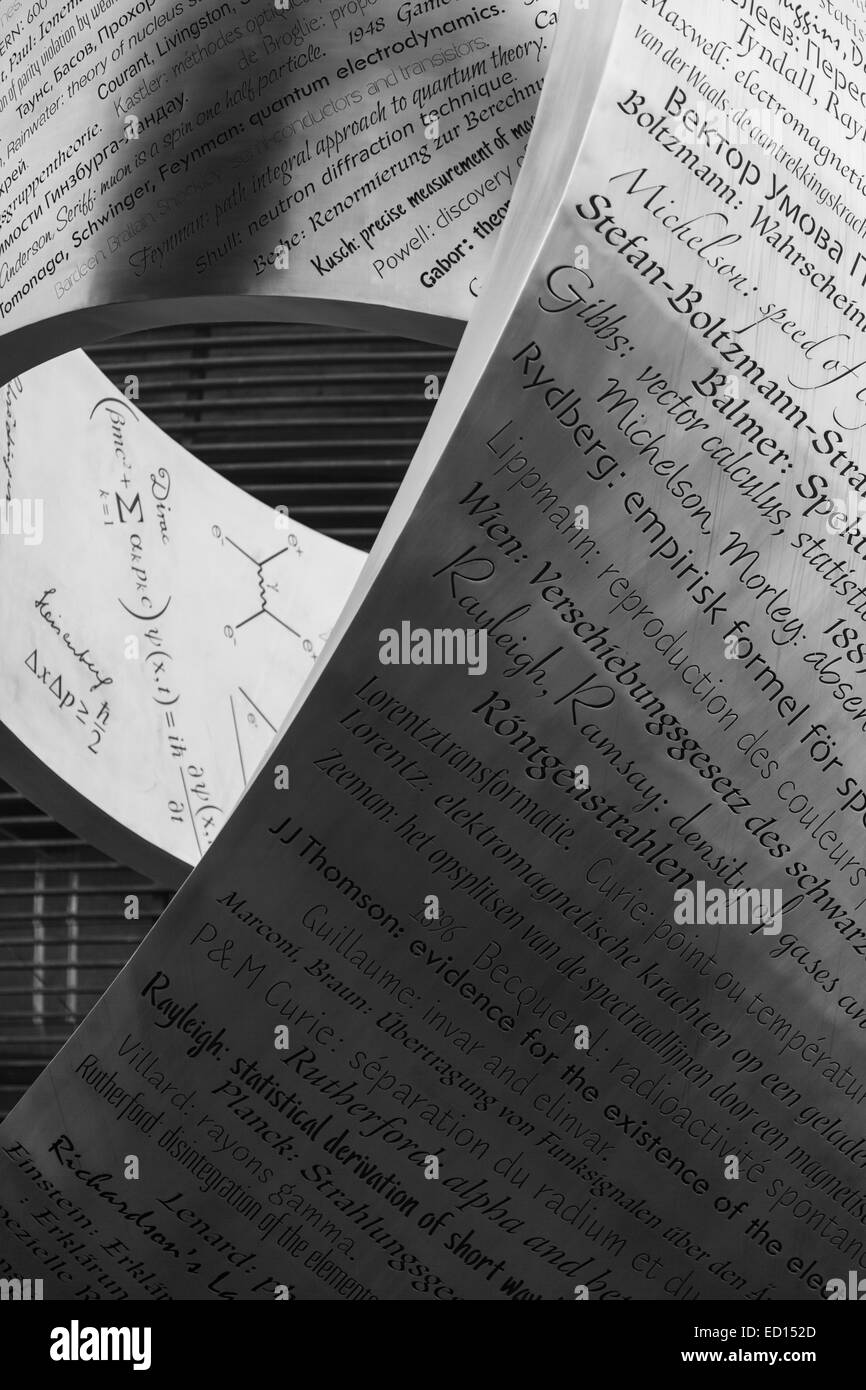 ERN: 600
Paul: Ionen
n of parity violation by
Таунс, Басов, Прохор
Rainwater: theory of nucleus s
Courant, Livingston, S
Kastler: méthodes optiques
de Broglie: propo
1948 Gam
particle.
Anderson, Seriff: muon is a spin one half
имости Гинзбурга-Ландау.
Tomonaga, Schwinger, Feynman: quantum electrodynamics.
Bardeen, Brattain, Shockley: semi-conductors and transistors.
Feynman: path integral approach to quantum theory.
Shull: neutron diffraction technique.
Bethe: Renormierung zur Berechnu
Kusch: precise measurement of mag
Powell: discovery
Gabor: theor
Dirac
(βmc² + ∑ k=1 αₖpₖc) ψ(x,t) = iħ ∂ψ(x, ∂t
Heisenberg
ΔxΔp ≥ ħ 2
e⁻ e⁺
γ
e⁻ e⁺
e⁻
Statis
Huggins, D
Tyndall, Ray
Maxwell: electromagnet
van der Waals: de aantrekkingskrach
Вектор Умова П
Boltzmann: Wahrschein
Michelson: speed of
Stefan-Boltzmann-Stra
Balmer: Spekt
Gibbs: vector calculus, statistic
Michelson, Morley: absen
188
Rydberg: empirisk formel för spe
Lippmann: reproduction des couleurs
Wien: Verschiebungsgesetz des schwarz
Rayleigh, Ramsay: density of gases an
Röntgenstrahlen
Curie: point ou températur
Lorentztransformatie.
Lorentz: elektromagnetische krachten op een gelade
Zeeman: het opsplitsen van de spectraallijnen door een magnetis
1896 Becquerel: radioactivité spontan
JJ Thomson: evidence for the existence of the elec
Guillaume: invar and elinvar.
Marconi, Braun: Übertragung von Funksignalen über den A
P & M Curie: séparation du radium et du
Rutherford alpha and bet
Rayleigh: statistical derivation of short wav
Villard: rayons gamma.
Planck: Strahlungsge
Rutherford: disintegration of the elements
Lenard: P
Richardson's La
Einstein: Erklärun
pezielle R
alamy
alamy stock photo
ED152D
www.alamy.com